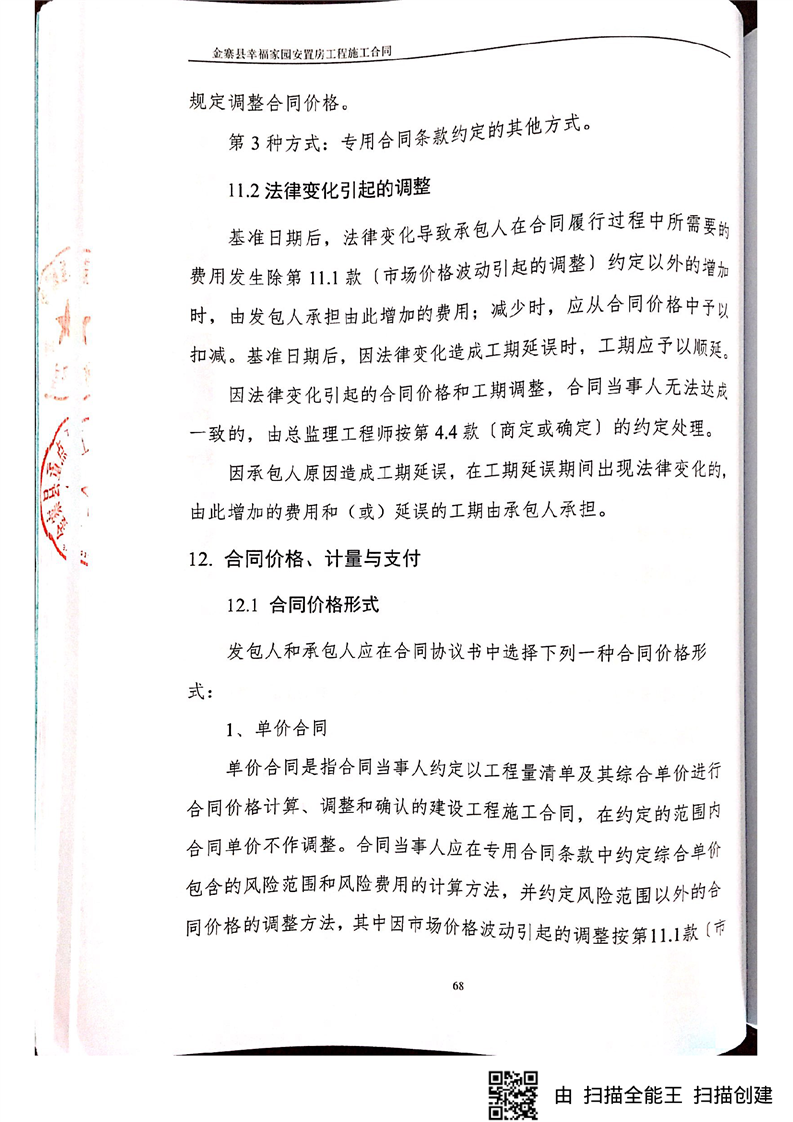 金寨县幸福家园安置房工程施工合同
规定调整合同价格。
第 3 种方式：专用合同条款约定的其他方式。
11.2 法律变化引起的调整
基准日期后，法律变化导致承包人在合同履行过程中所需要的
费用发生除第 11.1 款〔市场价格波动引起的调整〕约定以外的增加
时，由发包人承担由此增加的费用；减少时，应从合同价格中予以
扣减。基准日期后，因法律变化造成工期延误时，工期应予以顺延。
因法律变化引起的合同价格和工期调整，合同当事人无法达成
一致的，由总监理工程师按第 4.4 款〔商定或确定〕的约定处理。
因承包人原因造成工期延误，在工期延误期间出现法律变化的，
由此增加的费用和（或）延误的工期由承包人承担。
12. 合同价格、计量与支付
12.1 合同价格形式
发包人和承包人应在合同协议书中选择下列一种合同价格形
式：
1、单价合同
单价合同是指合同当事人约定以工程量清单及其综合单价进行
合同价格计算、调整和确认的建设工程施工合同，在约定的范围内
合同单价不作调整。合同当事人应在专用合同条款中约定综合单价
包含的风险范围和风险费用的计算方法，并约定风险范围以外的合
同价格的调整方法，其中因市场价格波动引起的调整按第11.1款〔市
68
由 扫描全能王 扫描创建